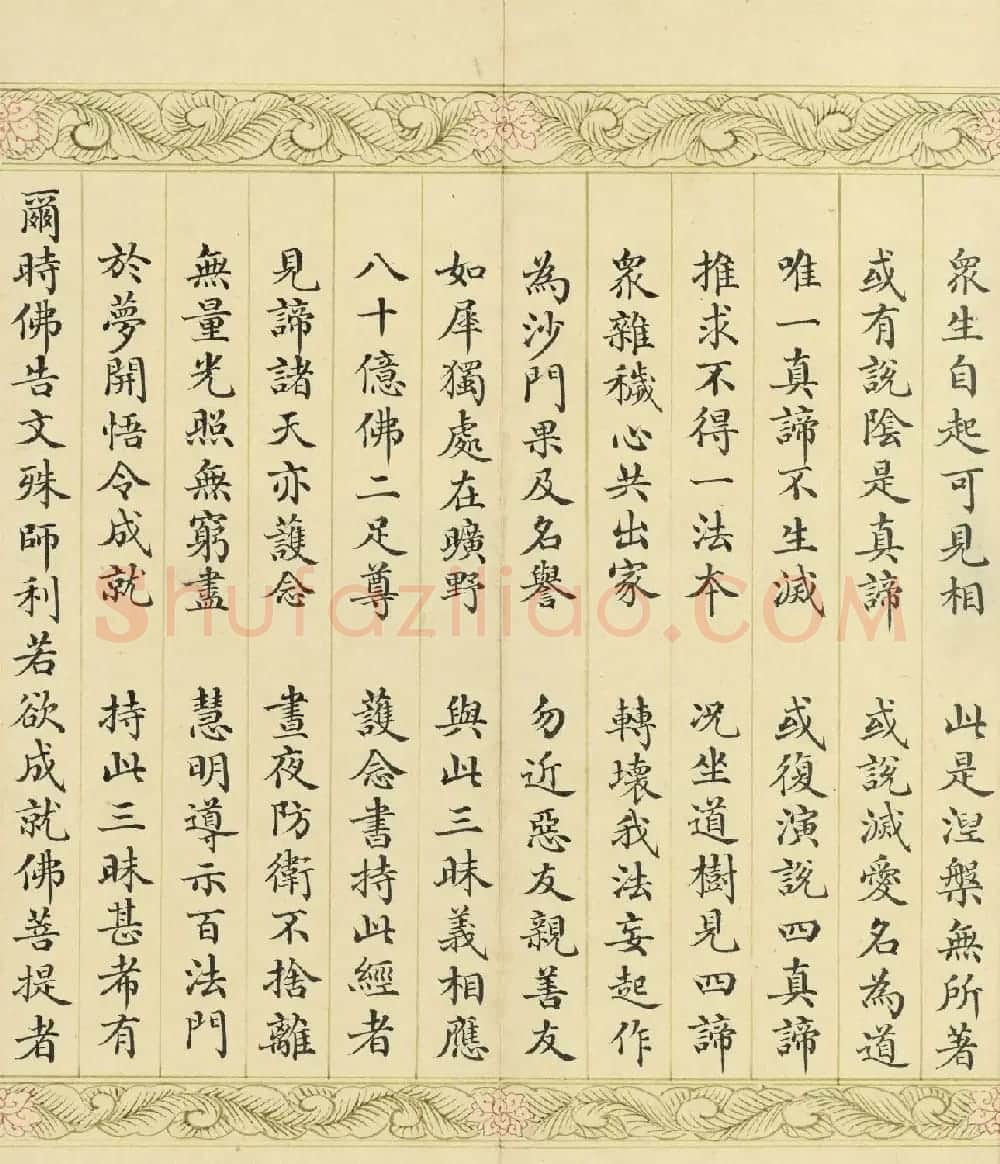 眾生自起可見相 此是涅槃無所著
或有說陰是真諦 或說滅愛名為道
唯一真諦不生滅 或復演說四真諦
推求不得一法本 況坐道樹見四諦
眾雜穢心共出家 轉壞我法妄起作
為沙門果及名譽 勿近惡友親善友
如犀獨處在曠野 與此三昧義相應
八十億佛二足尊 護念書持此經者
見諦諸天亦護念 晝夜防衛不捨離
無量光照無窮盡 慧明導示百法門
於夢開悟令成就 持此三昧甚希有
爾時佛告文殊師利若欲成就佛菩提者
Shufaziliao.COM